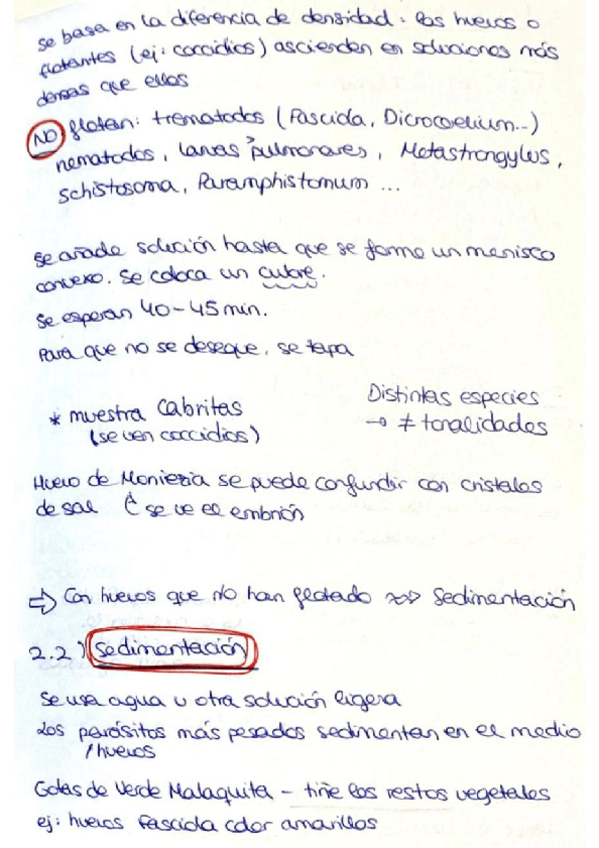 se basa en la diferencia de densidad: los huevos o
flotantes (ej: coccidios) ascienden en soluciones más
densas que ellos
NO flotan: trematodos (Fasciola, Dicrocoelium...)
nematodos, larvas pulmonares, Metastrongylus,
schistosoma, Paramphistomum ...
se añade solución hasta que se forme un menisco
convexo. Se coloca un cubre.
Se esperan 40-45 min.
Para que no se deseque, se tapa
* muestra Cabritas
(se ven coccidios)
Distintas especies
→ ≠ tonalidades
Huevo de Moniezia se puede confundir con cristales
de sal se ve el embrión
⇒ Con huevos que no han flotado Sedimentación
2.2) Sedimentación
Se usa agua u otra solución ligera
Los parásitos más pesados sedimentan en el medio
/huevos
Gotas de Verde Malaquita - tiñe los restos vegetales
ej: huevos Fasciola color amarillos